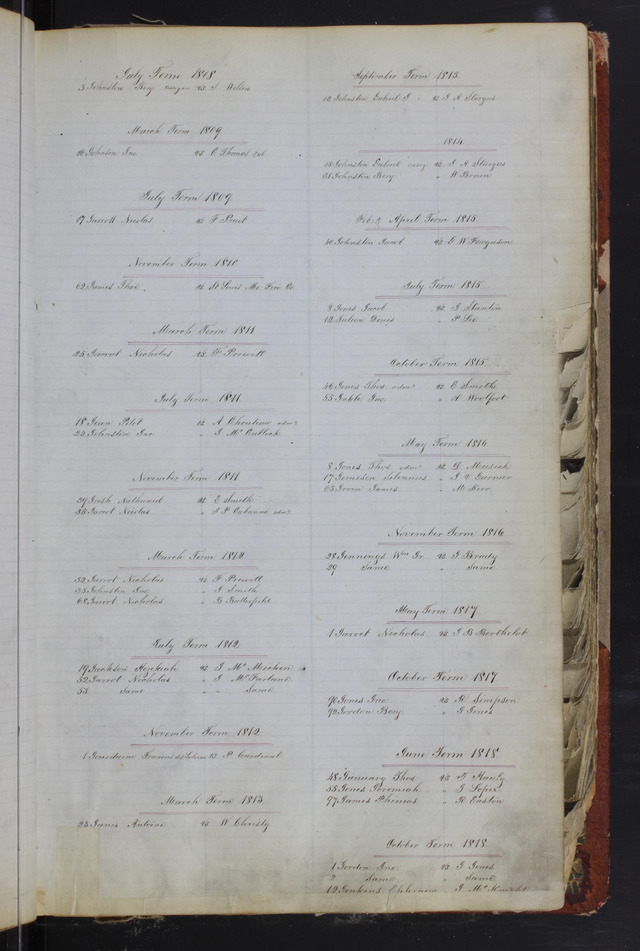 July Term 1808
3 Johnston Benj vs J Wiles
March Term 1809
10 Johnson Jno vs C Thomas
July Term 1809
17 Jarrott Nicolas vs F Pruit
November Term 1810
62 James Thos. vs St Louis Mo Fur Co
March Term 1811
25 Jarrot Nicholas vs F Prewitt
July Term 1811
18 Jean Pitot vs A Christian adm
23 Johnston Jno " J McCulloch
November Term 1811
29 Josh Nathaniel vs E Smith
30 Jarrot Nicolas " adm
March Term 1812
52 Jarrot Nicholas vs F Prewitt
55 Johnston Jno " J Smith
68 Jarrot Nicholas " B Butterfield
July Term 1812
19 Jackson Hezekiah vs J
52 Jarrot Nicholas " J McFarland
53 Same " Same
November Term 1812
1 Francois vs P Cardinal
March Term 1813
23 Janis Antoine vs W Christy
September Term 1813
12 Johnston Gabriel J vs J A Sturgus
1814
18 Johnston Gabriel vs J A Sturgus
21 Johnston Benj " W Brown
Feb. & April Term 1815
40 Johnston Jacob vs E W Ferguson
July Term 1815
9 Jones Jacob vs J Stanton
12 Julien Denis " P Lee
October Term 1815
46 Jones Thos adm vs E Smith
55 Jno " A Woolfort
May Term 1816
8 Jones Thos adm vs D Musick
17 Jamison " J Garnier
63 Irvin James " M Kerr
November Term 1816
28 Jennings Wm Gr vs J Brady
29 Same " Same
May Term 1817
1 Jarrot Nicholas vs J B Berthelot
October Term 1817
90 Jones Jno vs R Simpson
92 Jordon Benj " J Jones
June Term 1818
48 January Thos vs H
55 Jones Jeremiah " J Loper
97 James Phineas " R Easton
October Term 1818
1 Jordon Jno vs J Jones
2 Same " Same
12 Jenkins " J McKnight